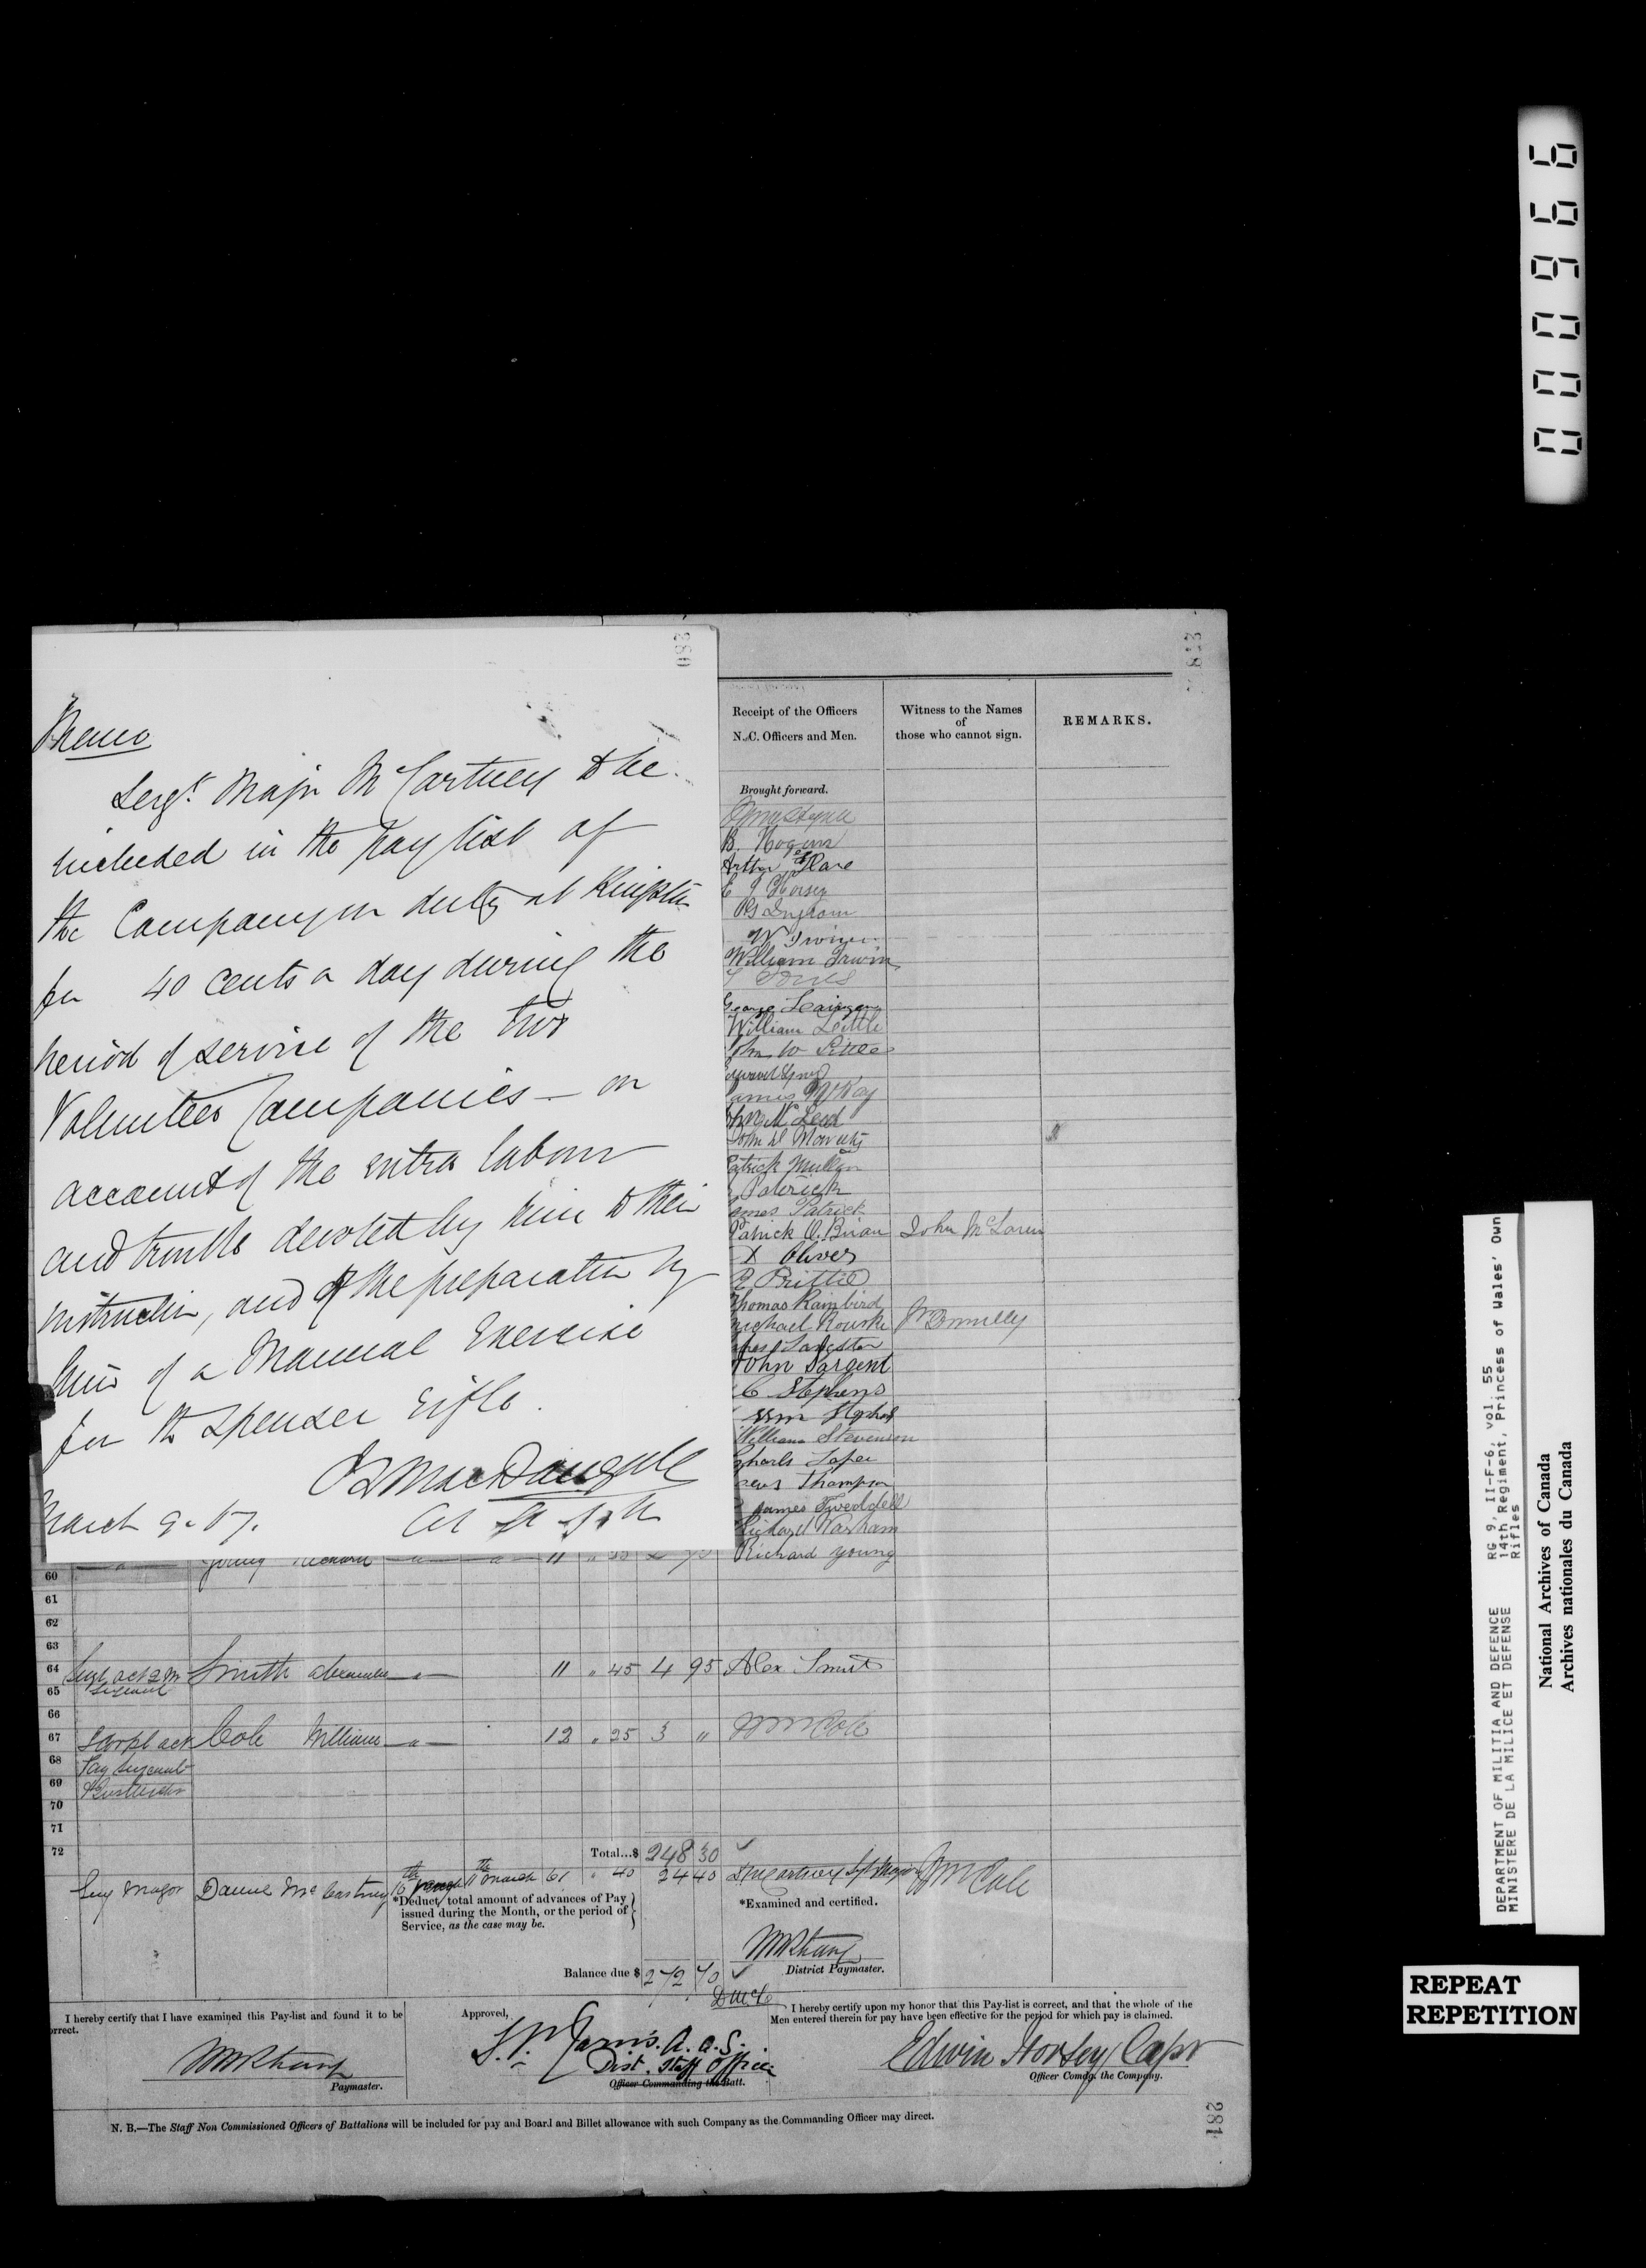 000966
280
278
Memo
Sergt. Major McCartney to be
included in the Pay list of
the Company on duty at Kingston
for 40 cents a day during the
period of service of the two
Volunteer Companies — on
account of the extra labour
and trouble devoted by him to their
instruction, and of the preparation by
him of a Manual Exercise
for the Spenser Rifle.
MacDougall
March 9. 67.
Receipt of the Officers
N.C. Officers and Men.
Witness to the Names
of
those who cannot sign.
REMARKS.
Brought forward.
Arthur Hare
Ingram
W Irwin
William Irwin
George
William Little
John W
McKay
McLeod
John
Patrick Mullen
Patrick
James Patrick
Patrick O. Brian John McLaren
Oliver
Thomas Rainbird
Michael Rourke Donnelly
Sangster
John Sargent
C Stephens
William Stevenson
Charls
Thompson
James Tweddell
Richard
Young Richard 11 Richard Young
60
61
62
63
64 Smith Alexander 11 " 45 4 95 Alex Smith
65
66
67 Cole William 12 " 25 3 " Wm Cole
68 Pay Sergeant
69
70
71
72
Total...$ 248 30
Serg Major McCartney 11th March 61 " 40 24 40 Wm Cole
*Deduct, total amount of advances of Pay
issued during the Month, or the period of
Service, as the case may be.
*Examined and certified.
District Paymaster.
Balance due $ 272 70
I hereby certify that I have examined this Pay-list and found it to be
orrect.
Paymaster.
Approved,
Jarvis. A. A. G.
Dist. Staff Officer
Officer Commanding the Batt.
I hereby certify upon my honor that this Pay-list is correct, and that the whole of the
Men entered therein for pay have been effective for the period for which pay is claimed.
Edwin Horsey Capt
Officer Comdg. the Company.
N. B.—The Staff Non Commissioned Officers of Battalions will be included for pay and Board and Billet allowance with such Company as the Commanding Officer may direct.
281
DEPARTMENT OF MILITIA AND DEFENCE RG 9, II-F-6, vol. 55
MINISTERE DE LA MILICE ET DEFENSE 14th Regiment, Princess of Wales' Own
Rifles
National Archives of Canada
Archives nationales du Canada
REPEAT
REPETITION